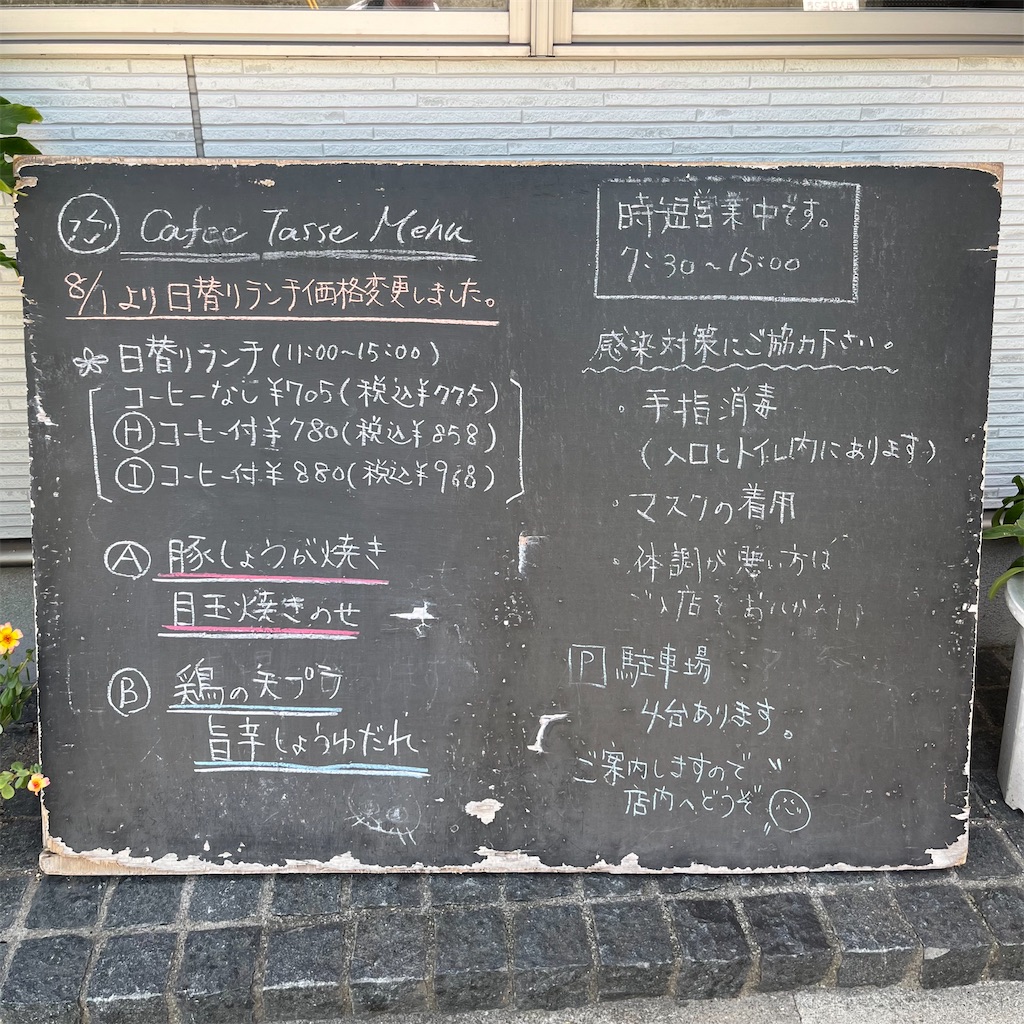 Cafee Tasse Menu
8/1より日替りランチ価格変更しました。
日替りランチ(11:00~15:00)
コーヒーなし¥705(税込¥775)
Ⓗコーヒー付¥780(税込¥858)
Ⓘコーヒー付¥880(税込¥968)
Ⓐ 豚しょうが焼き
目玉焼きのせ
Ⓑ 鶏の天プラ
旨辛しょうゆだれ
時短営業中です。
7:30~15:00
感染対策にご協力下さい。
・手指消毒
(入口とトイレ内にあります)
・マスクの着用
・体調が悪い方は
ご入店をお
P 駐車場
4台あります。
ご案内しますので
店内へどうぞ